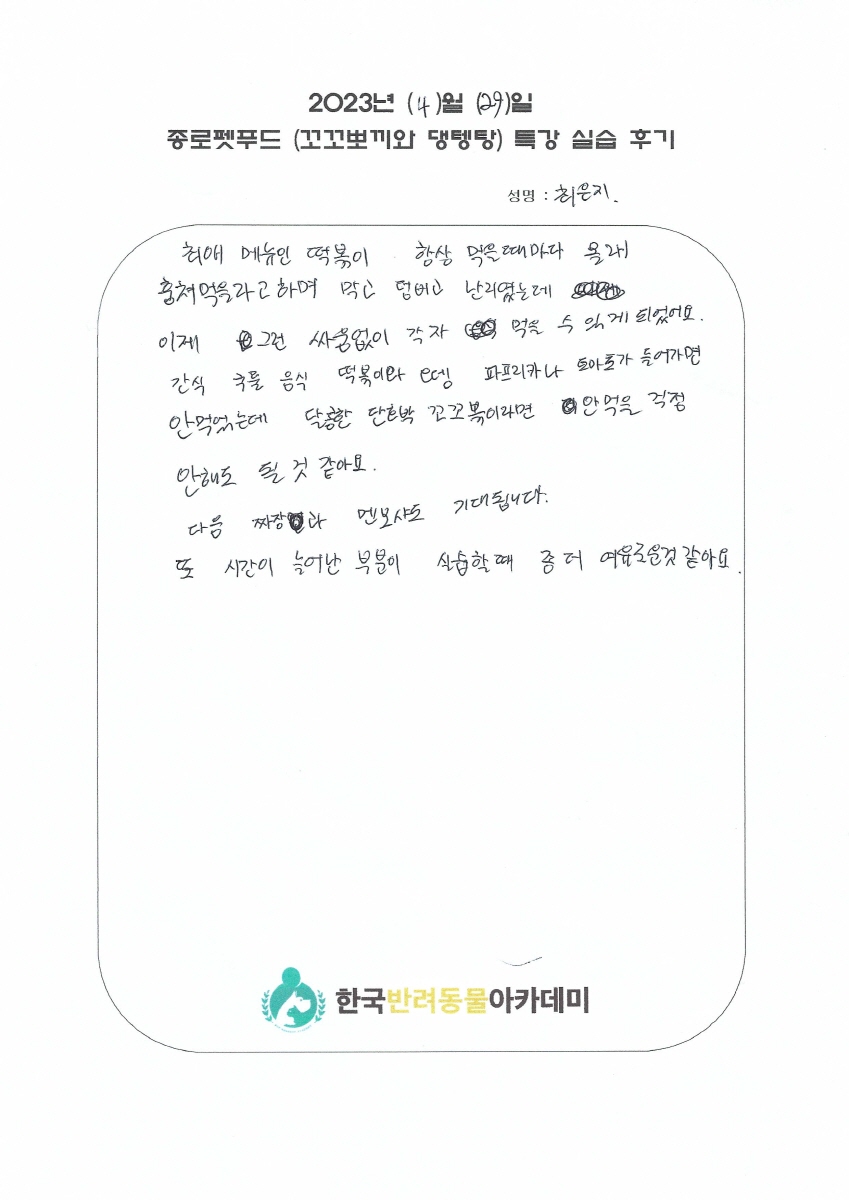 2023년 (4)월 (29)일
종로펫푸드 (꼬꼬뽀끼와 댕텡탕) 특강 실습 후기
성명 : 최은지.
최애 메뉴인 떡볶이 항상 먹을때마다 몰래
훔쳐먹을라고하며 막고 덤비고 난리였는데
이제 그런 싸움없이 각자 먹을 수 있게 되었어요.
간식 국룰 음식 떡볶이와 오뎅 파프리카나 토마토가 들어가면
안먹었는데 달콤한 단호박 꼬꼬볶이라면 안먹을 걱정
안해도 될 것 같아요.
다음 짜장과 멘보샤도 기대됩니다.
또 시간이 늘어난 부분이 실습할때 좀 더 여유로운것 같아요.
한국반려동물아카데미